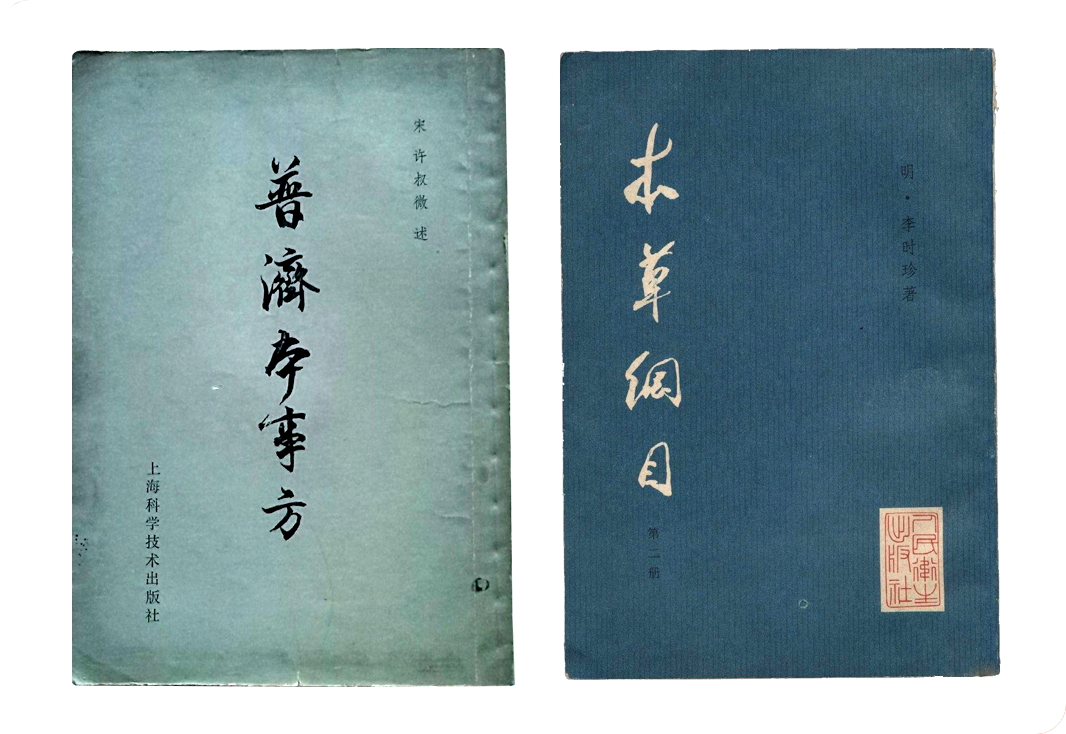 宋 许叔微 述
普濟本事方
上海科学技术出版社
明·李时珍著
本草綱目
第二册
人民衛生出版社